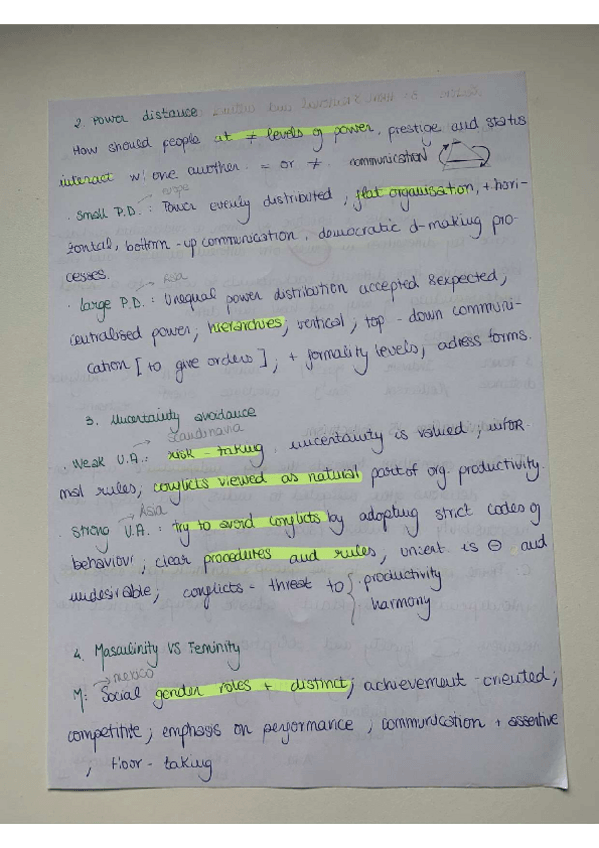 2. Power distance
How should people at ≠ levels of power, prestige and status
interact w/ one another. = or ≠. communication
europe
· Small P.D.: Power evenly distributed, flat organisation, + hori-
zontal, bottom-up communication, democratic d-making pro-
cesses.
Asia
· Large P.D.: Unequal power distribution accepted & expected;
centralised power; hierarchies; vertical; top-down communi-
cation [to give orders]; + formality levels; adress forms.
3. Uncertainty avoidance
Scandinavia
· Weak U.A.: risk-taking, uncertainty is valued; infor-
mal rules; conflicts viewed as natural part of org. productivity.
Asia
· Strong U.A.: try to avoid conflicts by adopting strict codes of
behaviour; clear procedures and rules, uncert. is ⊖ and
undesirable; conflicts - threat to { · productivity
harmony
4. Masculinity VS Feminity
mexico
M: Social gender roles + distinct; achievement-oriented;
competitite; emphasis on performance; communication + assertive
; floor-taking